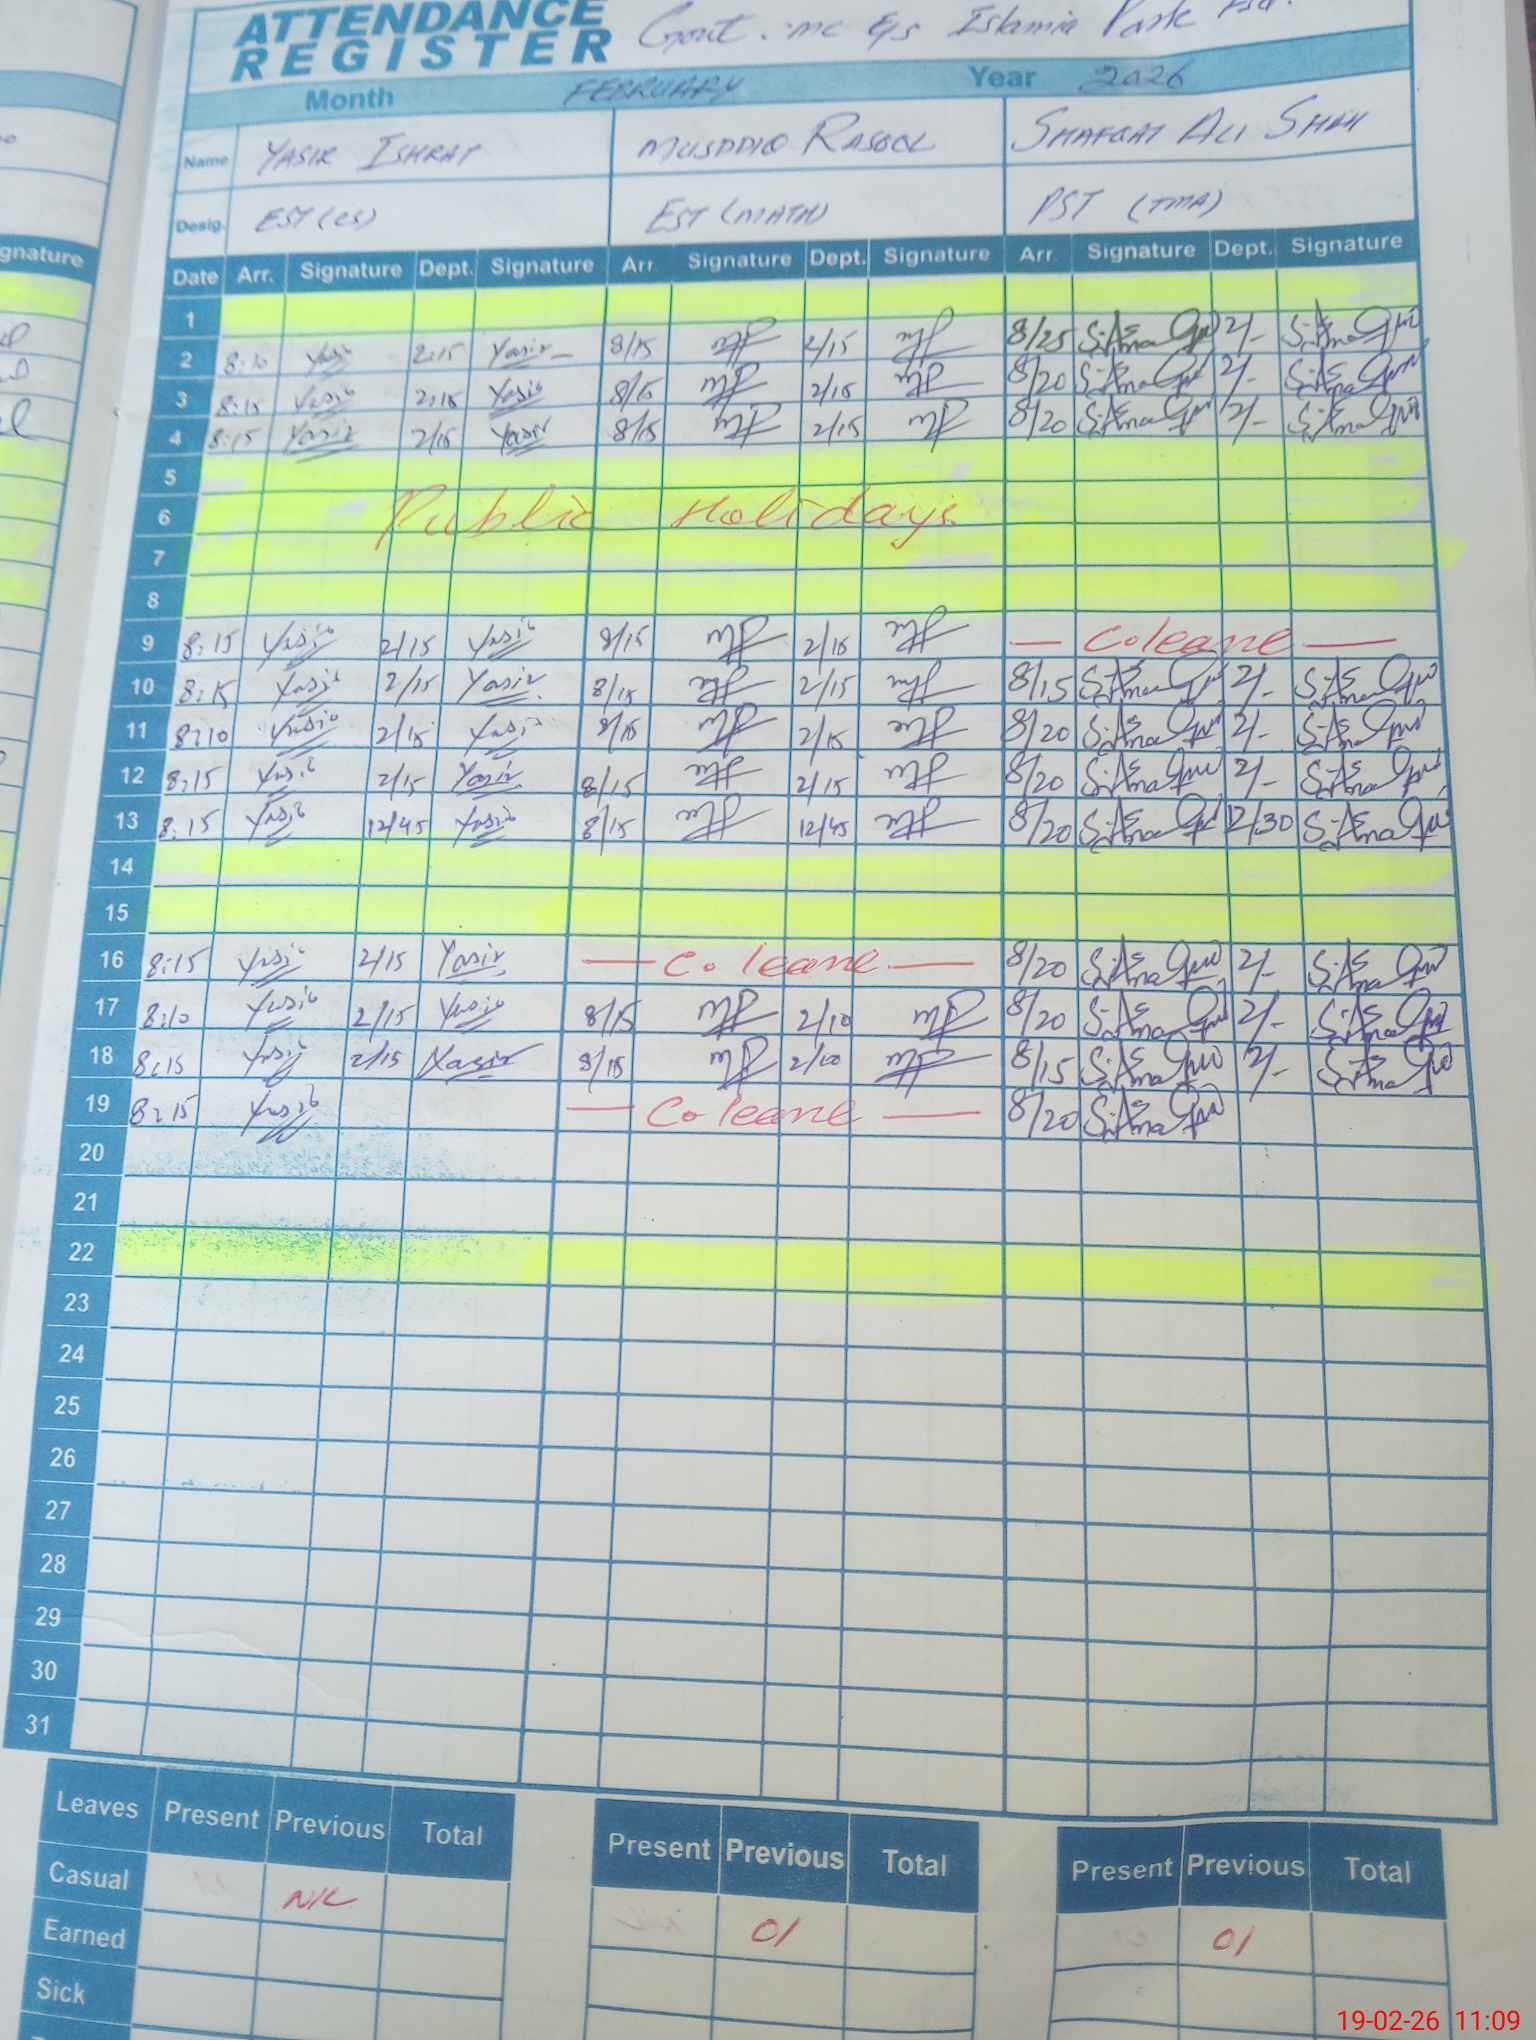 ATTENDANCE
REGISTER Govt. mc E/s Islamia Park
Month FEBRUARY Year 2026
Name YASIR ISHRAT MUSDDIQ RASOOL SHAFQAT ALI SHAH
Desig. EST (CS) EST (MATH) PST (TMA)
gnature
Date Arr. Signature Dept. Signature Arr Signature Dept. Signature Arr. Signature Dept. Signature
1
2 8:10 Yasir 2:15 Yasir 8/15 2/15 8/25 2/-
3 8:15 Yasir 2:15 Yasir 8/15 2/15 8/20 2/-
4 8:15 Yasir 2/15 Yasir 8/15 2/15 8/20 2/-
5
6 Public Holidays
7
8
9 8:15 Yasir 2/15 Yasir 8/15 2/15 — Co leave —
10 8:15 Yasir 2/15 Yasir 8/15 2/15 8/15 2/-
11 8:10 Yasir 2/15 Yasir 8/15 2/15 8/20 2/-
12 8:15 Yasir 2/15 Yasir 8/15 2/15 8/20 2/-
13 8:15 Yasir 12/45 Yasir 8/15 12/45 8/20 12/30
14
15
16 8:15 Yasir 2/15 Yasir — Co leave — 8/20 2/-
17 8:10 Yasir 2/15 Yasir 8/15 2/10 8/20 2/-
18 8:15 Yasir 2/15 Yasir 8/15 2/10 8/15 2/-
19 8:15 Yasir — Co leave — 8/20
20
21
22
23
24
25
26
27
28
29
30
31
Leaves Present Previous Total Present Previous Total Present Previous Total
Casual NIL 01 01
Earned
Sick
19-02-26 11:09